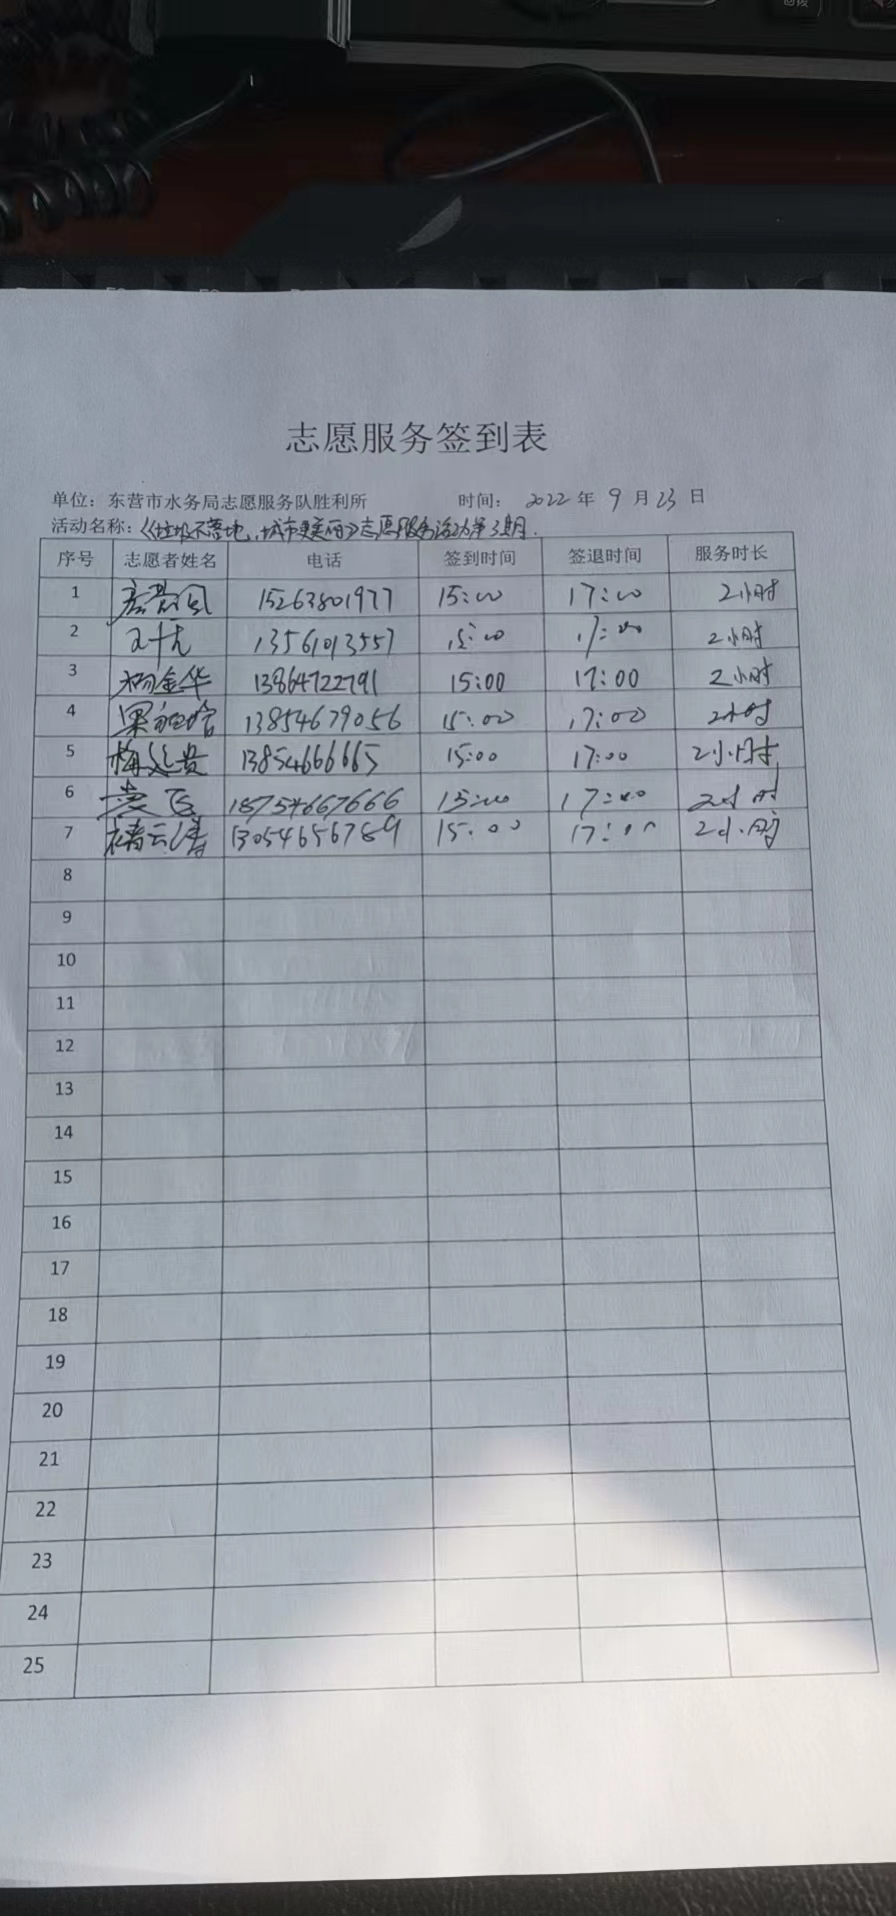 志愿服务签到表
单位：东营市水务局志愿服务队胜利所 时间： 2022 年 9 月 23 日
活动名称：《垃圾不落地，城市更美丽》志愿服务活动第3期.
序号 志愿者姓名 电话 签到时间 签退时间 服务时长
1 15263801977 15:00 17:00 2小时
2 13561013557 15:00 17:00 2小时
3 杨金华 13864722791 15:00 17:00 2小时
4 13854679056 15:00 17:00 2小时
5 梅延贵 13854666665 15:00 17:00 2小时
6 18754667666 15:00 17:00 2小时
7 褚云涛 13054656789 15:00 17:00 2小时
8
9
10
11
12
13
14
15
16
17
18
19
20
21
22
23
24
25